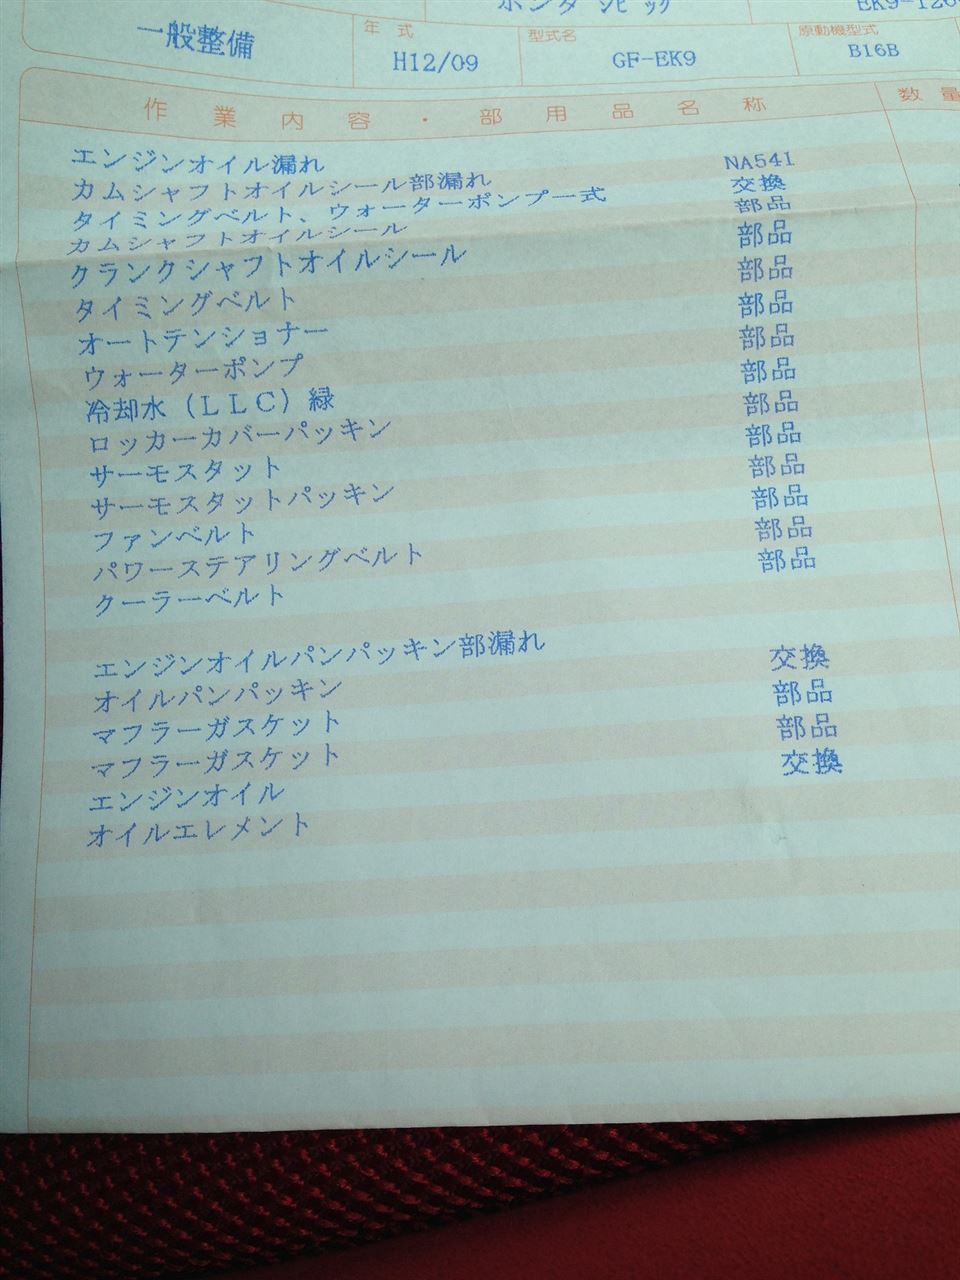 ホンダ シビック EK9-120
一般整備 年式 H12/09 型式名 GF-EK9 原動機型式 B16B
作業内容・部用品名称 数量
エンジンオイル漏れ NA54I
カムシャフトオイルシール部漏れ 交換
タイミングベルト、ウォーターポンプ一式 部品
カムシャフトオイルシール 部品
クランクシャフトオイルシール 部品
タイミングベルト 部品
オートテンショナー 部品
ウォーターポンプ 部品
冷却水(LLC)緑 部品
ロッカーカバーパッキン 部品
サーモスタット 部品
サーモスタットパッキン 部品
ファンベルト 部品
パワーステアリングベルト 部品
クーラーベルト
エンジンオイルパンパッキン部漏れ 交換
オイルパンパッキン 部品
マフラーガスケット 部品
マフラーガスケット 交換
エンジンオイル
オイルエレメント